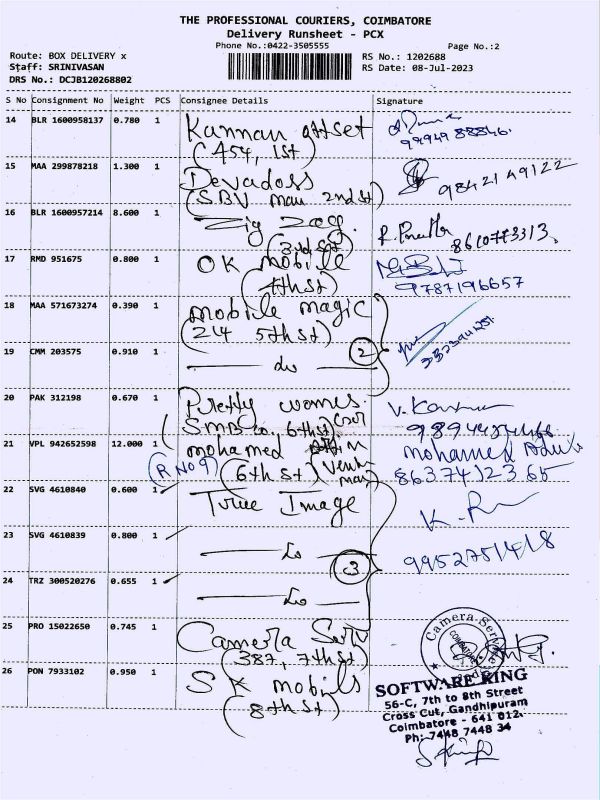 THE PROFESSIONAL COURIERS, COIMBATORE
Delivery Runsheet - PCX
Phone No.:0422-3505555
Page No.:2
Route: BOX DELIVERY x
Staff: SRINIVASAN
DRS No.: DCJB120268802
RS No.: 1202688
RS Date: 08-Jul-2023
S No Consignment No Weight PCS Consignee Details Signature
14 BLR 1600958137 0.780 1 Kannan offset
(454, 1st)
15 MAA 299878218 1.300 1 Devadoss 9842149122
(SBV Mau 2nd st)
16 BLR 1600957214 8.600 1 Zig Zog
(3rd st)
17 RMD 951675 0.800 1 OK mobile
(4th st) 9787196657
18 MAA 571673274 0.390 1 mobile magic
(24 5th st)
19 CMM 203575 0.910 1 do 2
20 PAK 312198 0.670 1 Pretty womes
(SMB Co. 6th st)
21 VPL 942652598 12.000 1 mohamed mohamed
(R No 9) (6th st) 8637412365
22 SVG 4610840 0.600 1 True Image
23 SVG 4610839 0.800 1 do 3 9952751418
24 TRZ 300520276 0.655 1 do
25 PRO 15022650 0.745 1 Camera Serv
(387, 7th st)
Camera Service
COIMBATORE
26 PON 7933102 0.950 1 S K mobils
(8th st)
SOFTWARE RING
56-C, 7th to 8th Street
Cross Cut, Gandhipuram
Coimbatore - 641 012.
Ph: 7448 7448 34